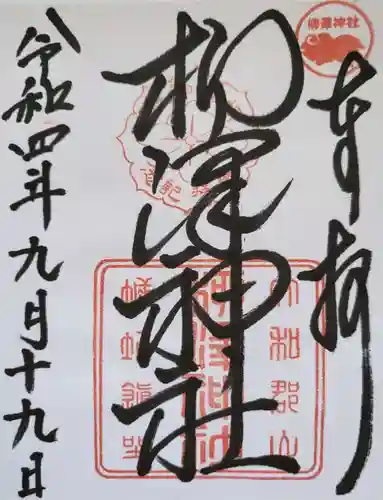 柳澤神社
奉拝
柳澤神社
令和四年九月十九日
大和郡山
柳澤神社